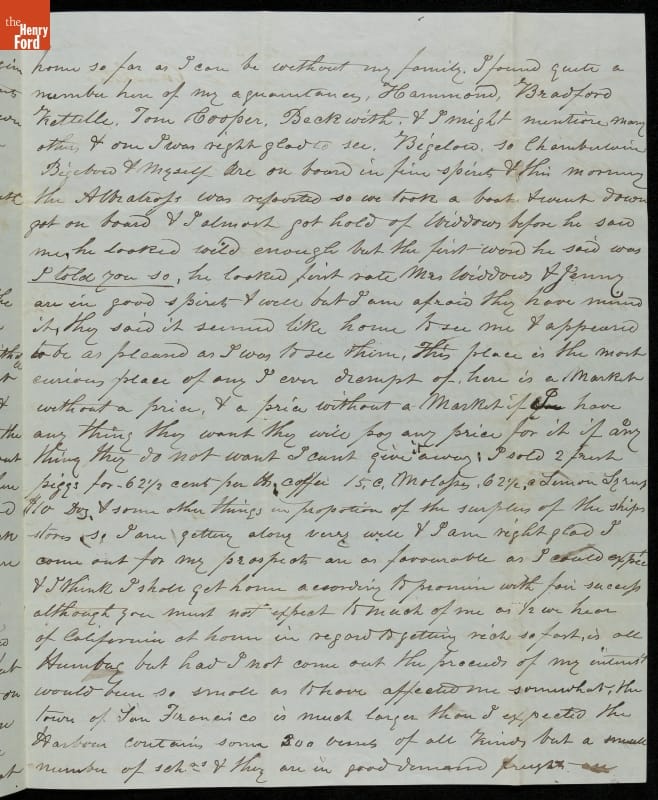 the
Henry
Ford
home so far as I can be without my family, I found quite a
number here of my aquantances, Hammond, Bradford
Kettelle, Tom Cooper, Beckwith, & I might mention many
others & one I was right glad to see, Bigelow, so Chamberlain
Bigelow & Myself are on board in fine spirits & this morning
the Albatross was reported so we took a boat & went down
got on board & I almost got hold of Widdows before he said
me, he looked wild enough but the first word he said was
I told you so, he looked first rate Mrs Widdows & Jenny
are in good spirits & well but I am afraid they have mind
it, they said it seemed like home to see me & appeared
to be as pleased as I was to see them, This place is the most
curious place of any I ever drempt of, here is a Market
without a price, & a price without a Market if I have
any thing they want they will pay any price for it if any
thing they do not want I cant give it away, I sold 2 fresh
piggs for 62 1/2 cents per lb, coffee 15 c, Molases, 62 1/2, Lemon Syrup
$10 Doz, & some other things in propotion of the surples of the ships
stores, so I am getting along very well & I am right glad I
come out for my prospects are as favourable as I could expect
& I think I shall get home according to promise with fair success
although you must not expect to much of me as 1/2 we hear
of California at home in regard to getting rich so fast, is all
Humbug but had I not come out the proceeds of my interest
would been so small as to have affected me somewhat, the
town of San Francisco is much larger than I expected the
Harbour contains some 300 vessels of all kinds but a small
number of schrs & they are in good demand freight